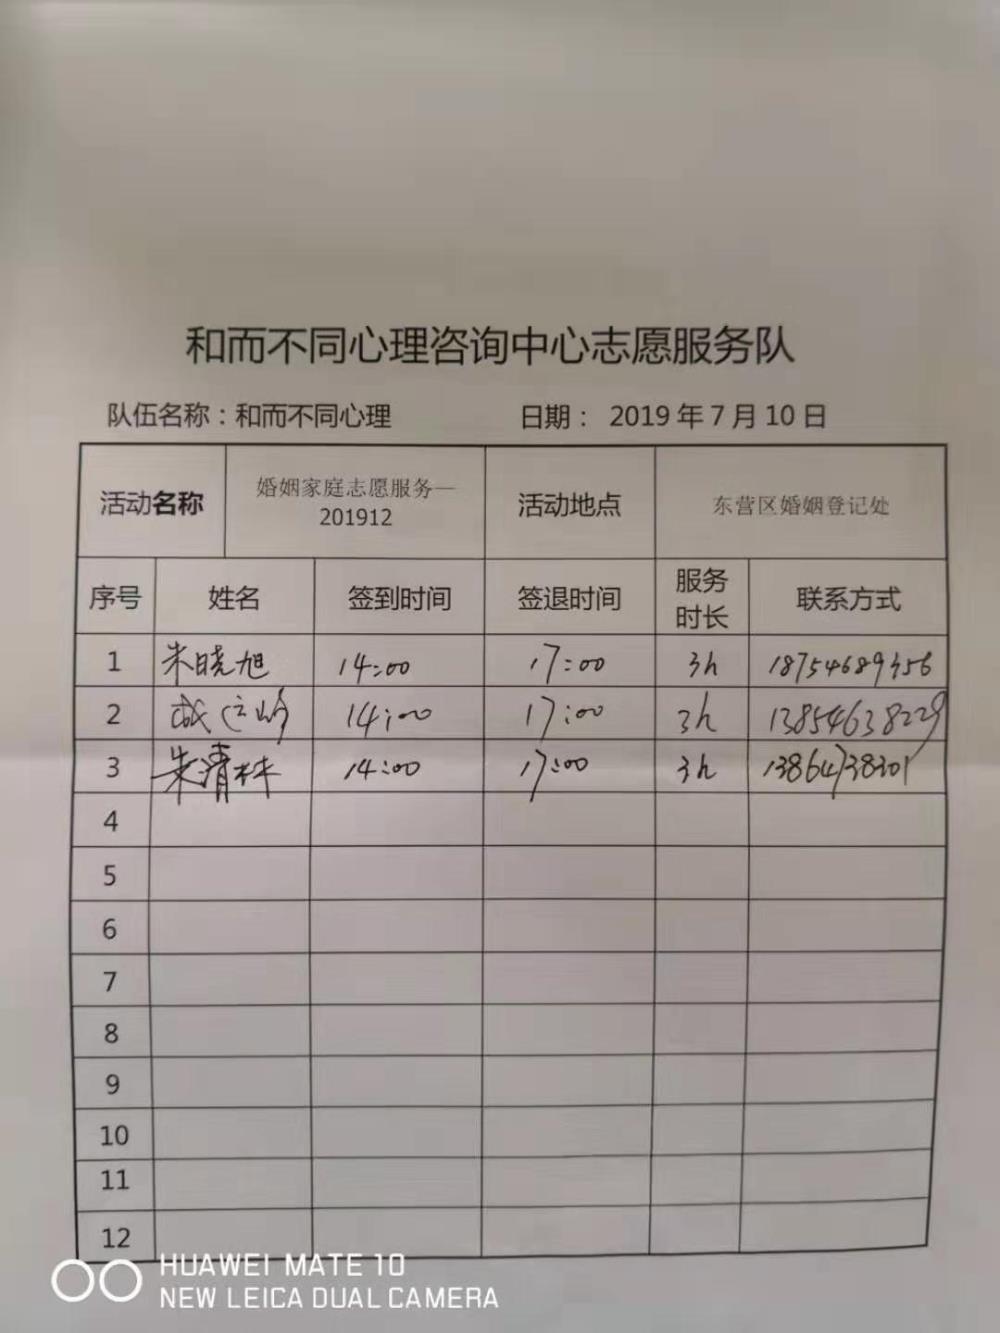 和而不同心理咨询中心志愿服务队
队伍名称：和而不同心理 日期： 2019 年 7 月 10 日
活动名称 婚姻家庭志愿服务—
201912
活动地点 东营区婚姻登记处
序号 姓名 签到时间 签退时间 服务
时长
联系方式
1 朱晓旭 14:00 17:00 3h
2 14:00 17:00 3h 13854638229
3 朱清林 14:00 17:00 3h 13864738301
4
5
6
7
8
9
10
11
12
HUAWEI MATE 10
NEW LEICA DUAL CAMERA